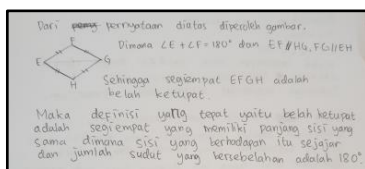 Dari pernyataan diatas diperoleh gambar.
F
E
G
H
Dimana ∠E + ∠F = 180° dan EF//HG, FG//EH
Sehingga segiempat EFGH adalah
belah ketupat.
Maka definisi yang tepat yaitu belah ketupat
adalah segiempat yang memiliki panjang sisi yang
sama dimana sisi yang berhadapan itu sejajar
dan jumlah sudut yang bersebelahan adalah 180°